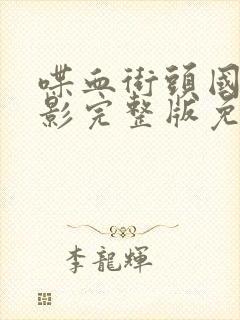 喋血街頭國
影完整版免
李龍輝